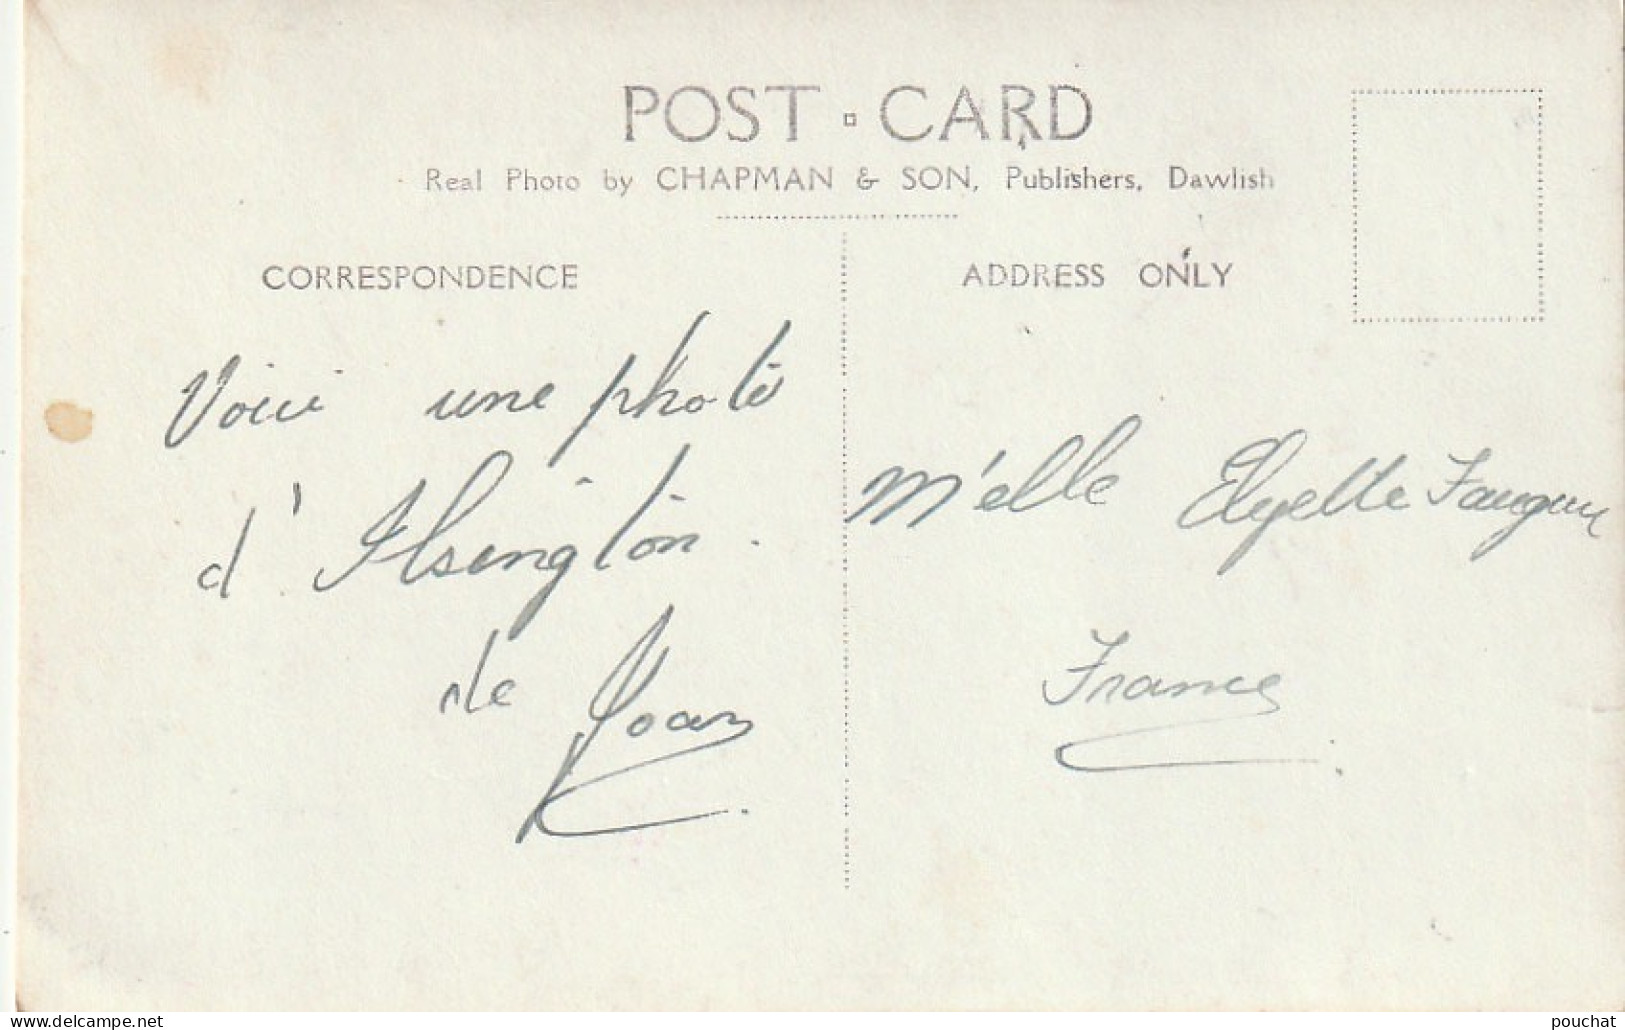 POST CARD
Real Photo by CHAPMAN & SON, Publishers, Dawlish
CORRESPONDENCE
ADDRESS ONLY
Voici une photo
d'Ilsington.
de Joan
M'elle Elyette
France.
www.delcampe.net
pouchat